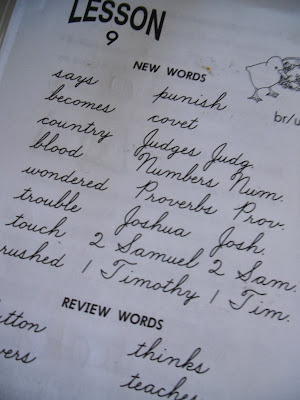 LESSON
9
NEW WORDS
br/u
says punish
becomes covet
country Judges Judg.
blood Numbers Num.
wondered Proverbs Prov.
trouble Joshua Josh.
touch 2 Samuel 2 Sam.
rushed 1 Timothy 1 Tim.
REVIEW WORDS
thinks